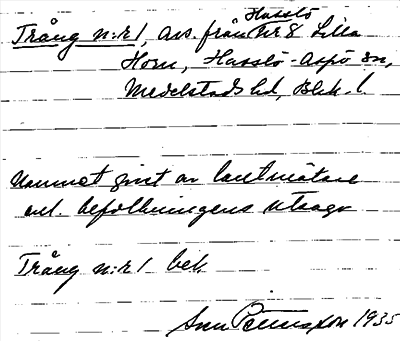 Hasslö
Trång n:r 1, avs. från Nr 8 Lilla
Horn, Hasslö-Aspö sn,
Medelstads hd, Blek. l.
Namnet givet av lantmätare
enl. befolkningens utsago
Trång n:r 1 bek.
Petersson 1935